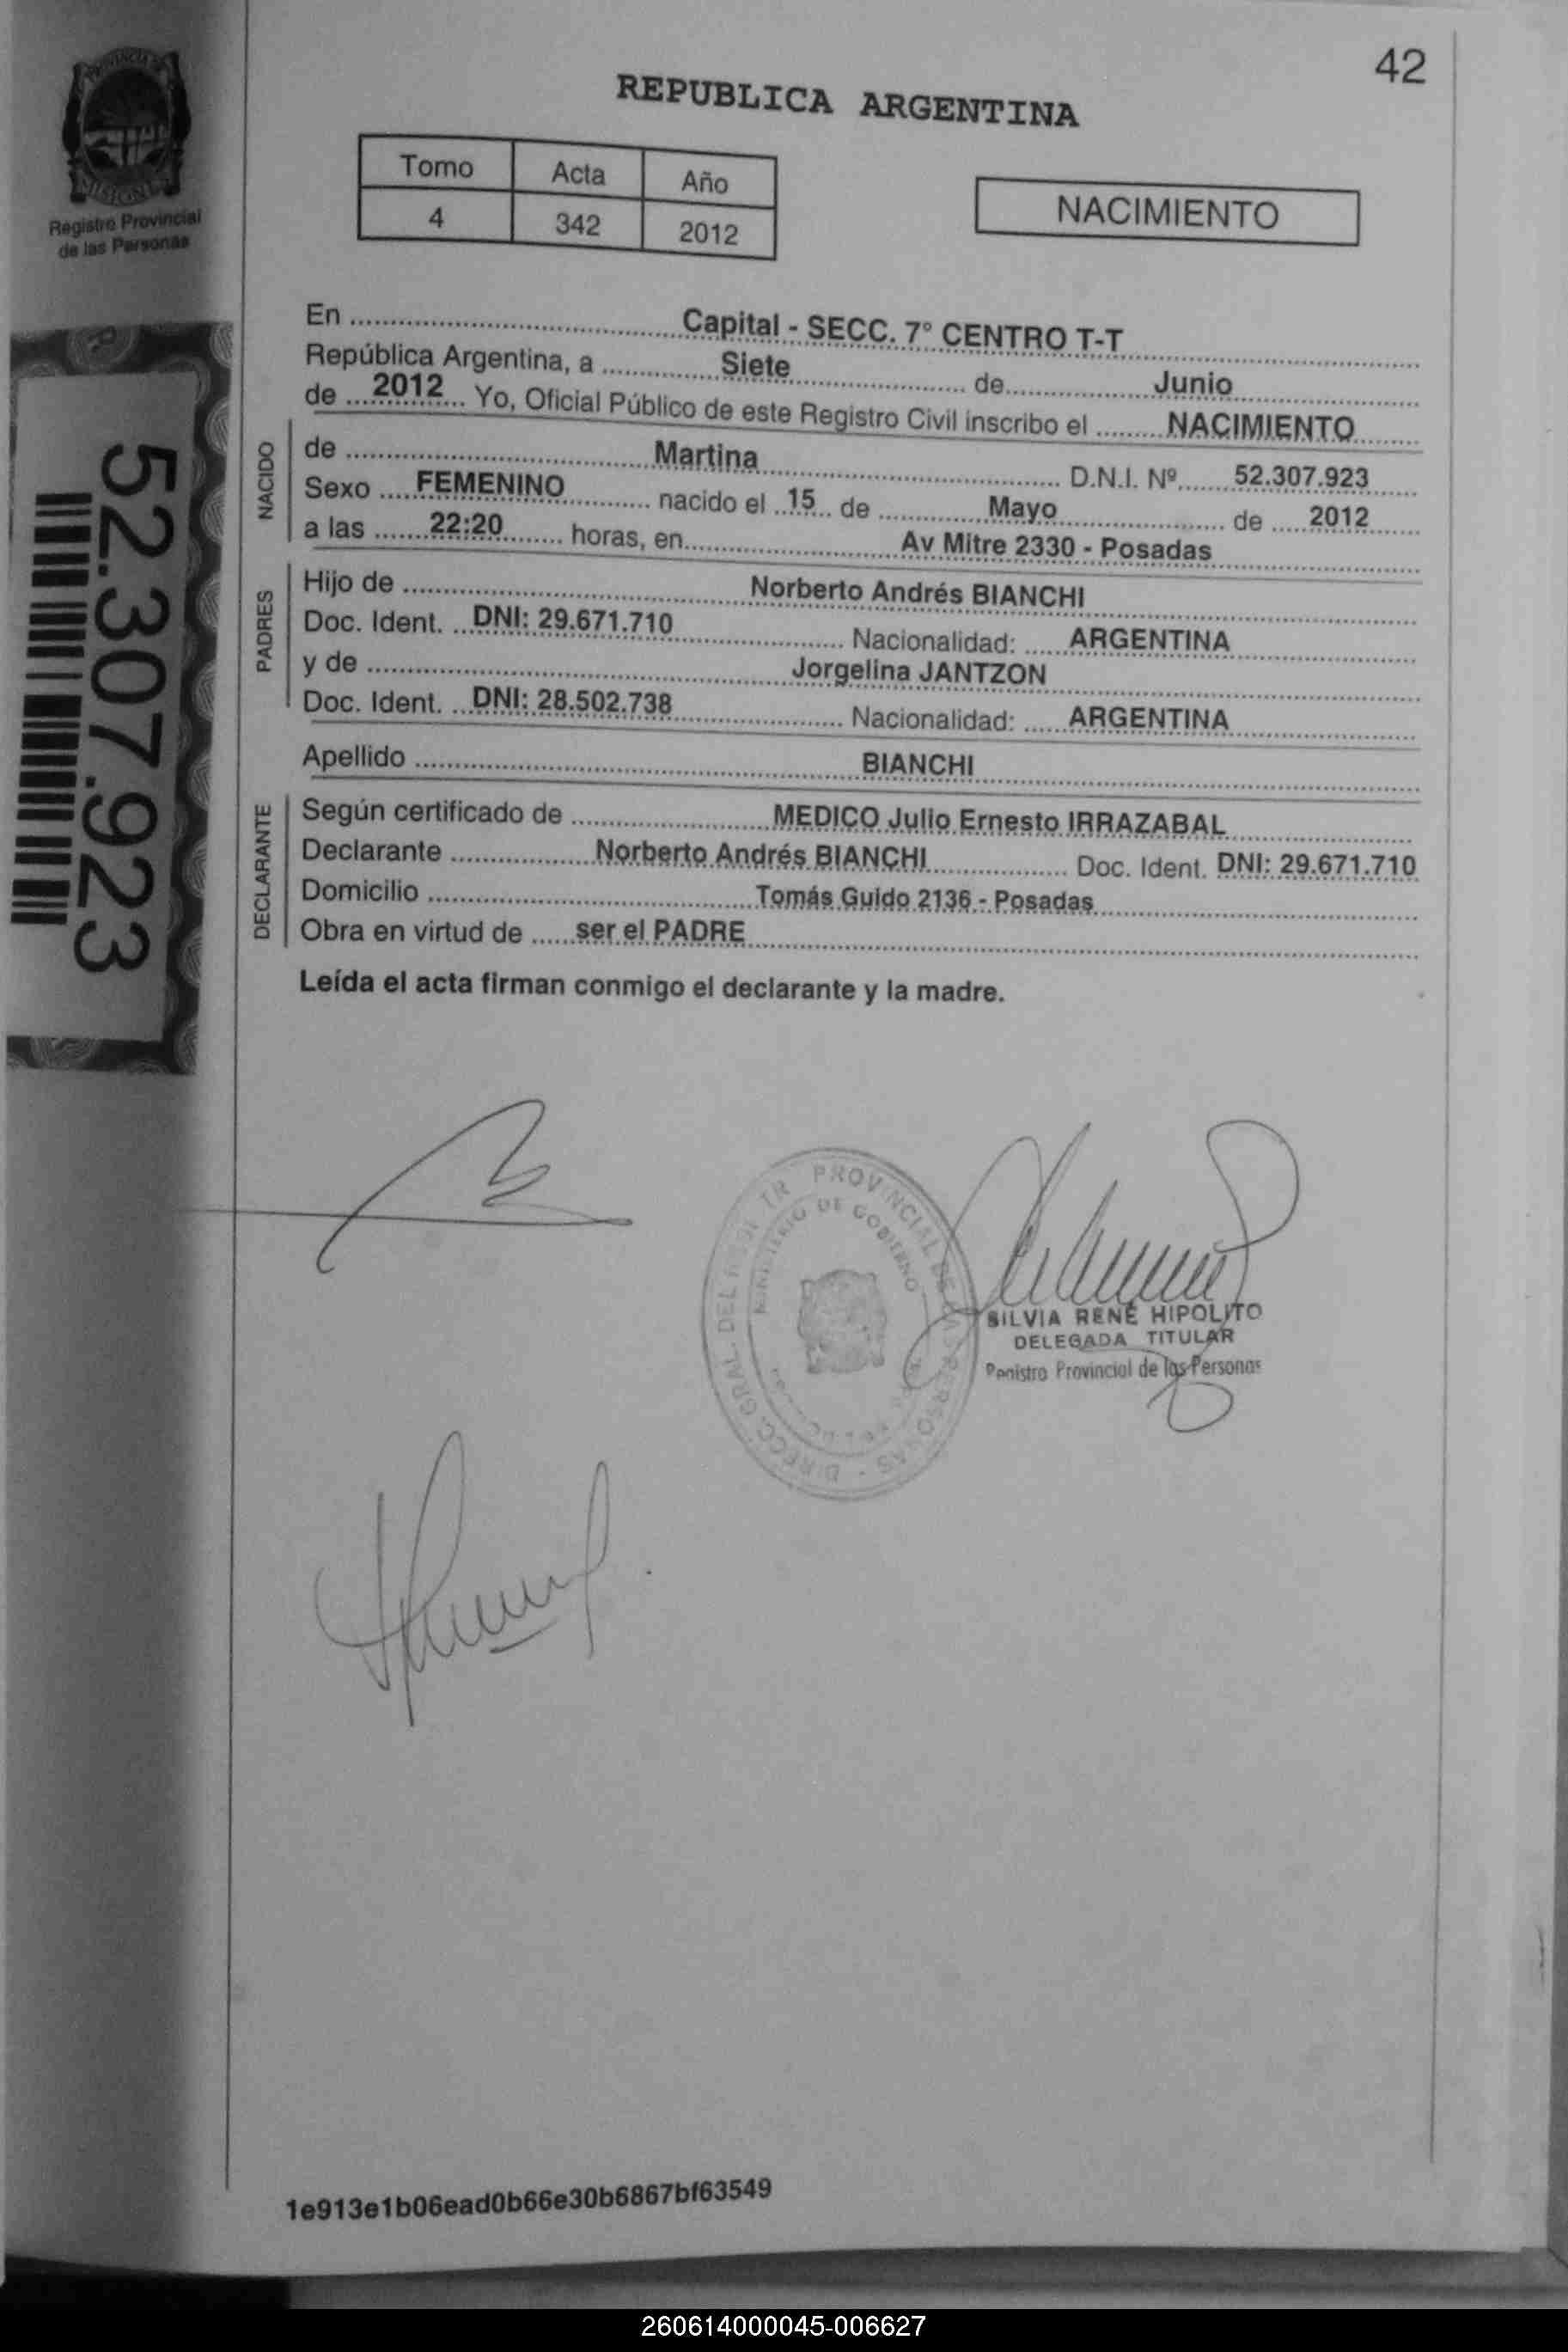 42
REPUBLICA ARGENTINA
PROVINCIA DE
MISIONES
Registro Provincial
de las Personas
Tomo Acta Año
4 342 2012
NACIMIENTO
En Capital - SECC. 7° CENTRO T-T
República Argentina, a Siete de Junio
de 2012 Yo, Oficial Público de este Registro Civil inscribo el NACIMIENTO
NACIDO
de Martina D.N.I. Nº 52.307.923
Sexo FEMENINO nacido el 15 de Mayo de 2012
a las 22:20 horas, en Av Mitre 2330 - Posadas
PADRES
Hijo de Norberto Andrés BIANCHI
Doc. Ident. DNI: 29.671.710 Nacionalidad: ARGENTINA
y de Jorgelina JANTZON
Doc. Ident. DNI: 28.502.738 Nacionalidad: ARGENTINA
Apellido BIANCHI
DECLARANTE
Según certificado de MEDICO Julio Ernesto IRRAZABAL
Declarante Norberto Andrés BIANCHI Doc. Ident. DNI: 29.671.710
Domicilio Tomás Guido 2136 - Posadas
Obra en virtud de ser el PADRE
Leída el acta firman conmigo el declarante y la madre.
52.307.923
PROVINCIAL DE LAS PERSONAS - DIRECC. GRAL. DEL
MINISTERIO DE GOBIERNO
SILVIA RENÉ HIPOLITO
DELEGADA TITULAR
Registro Provincial de las Personas
1e913e1b06ead0b66e30b6867bf63549
260614000045-006627